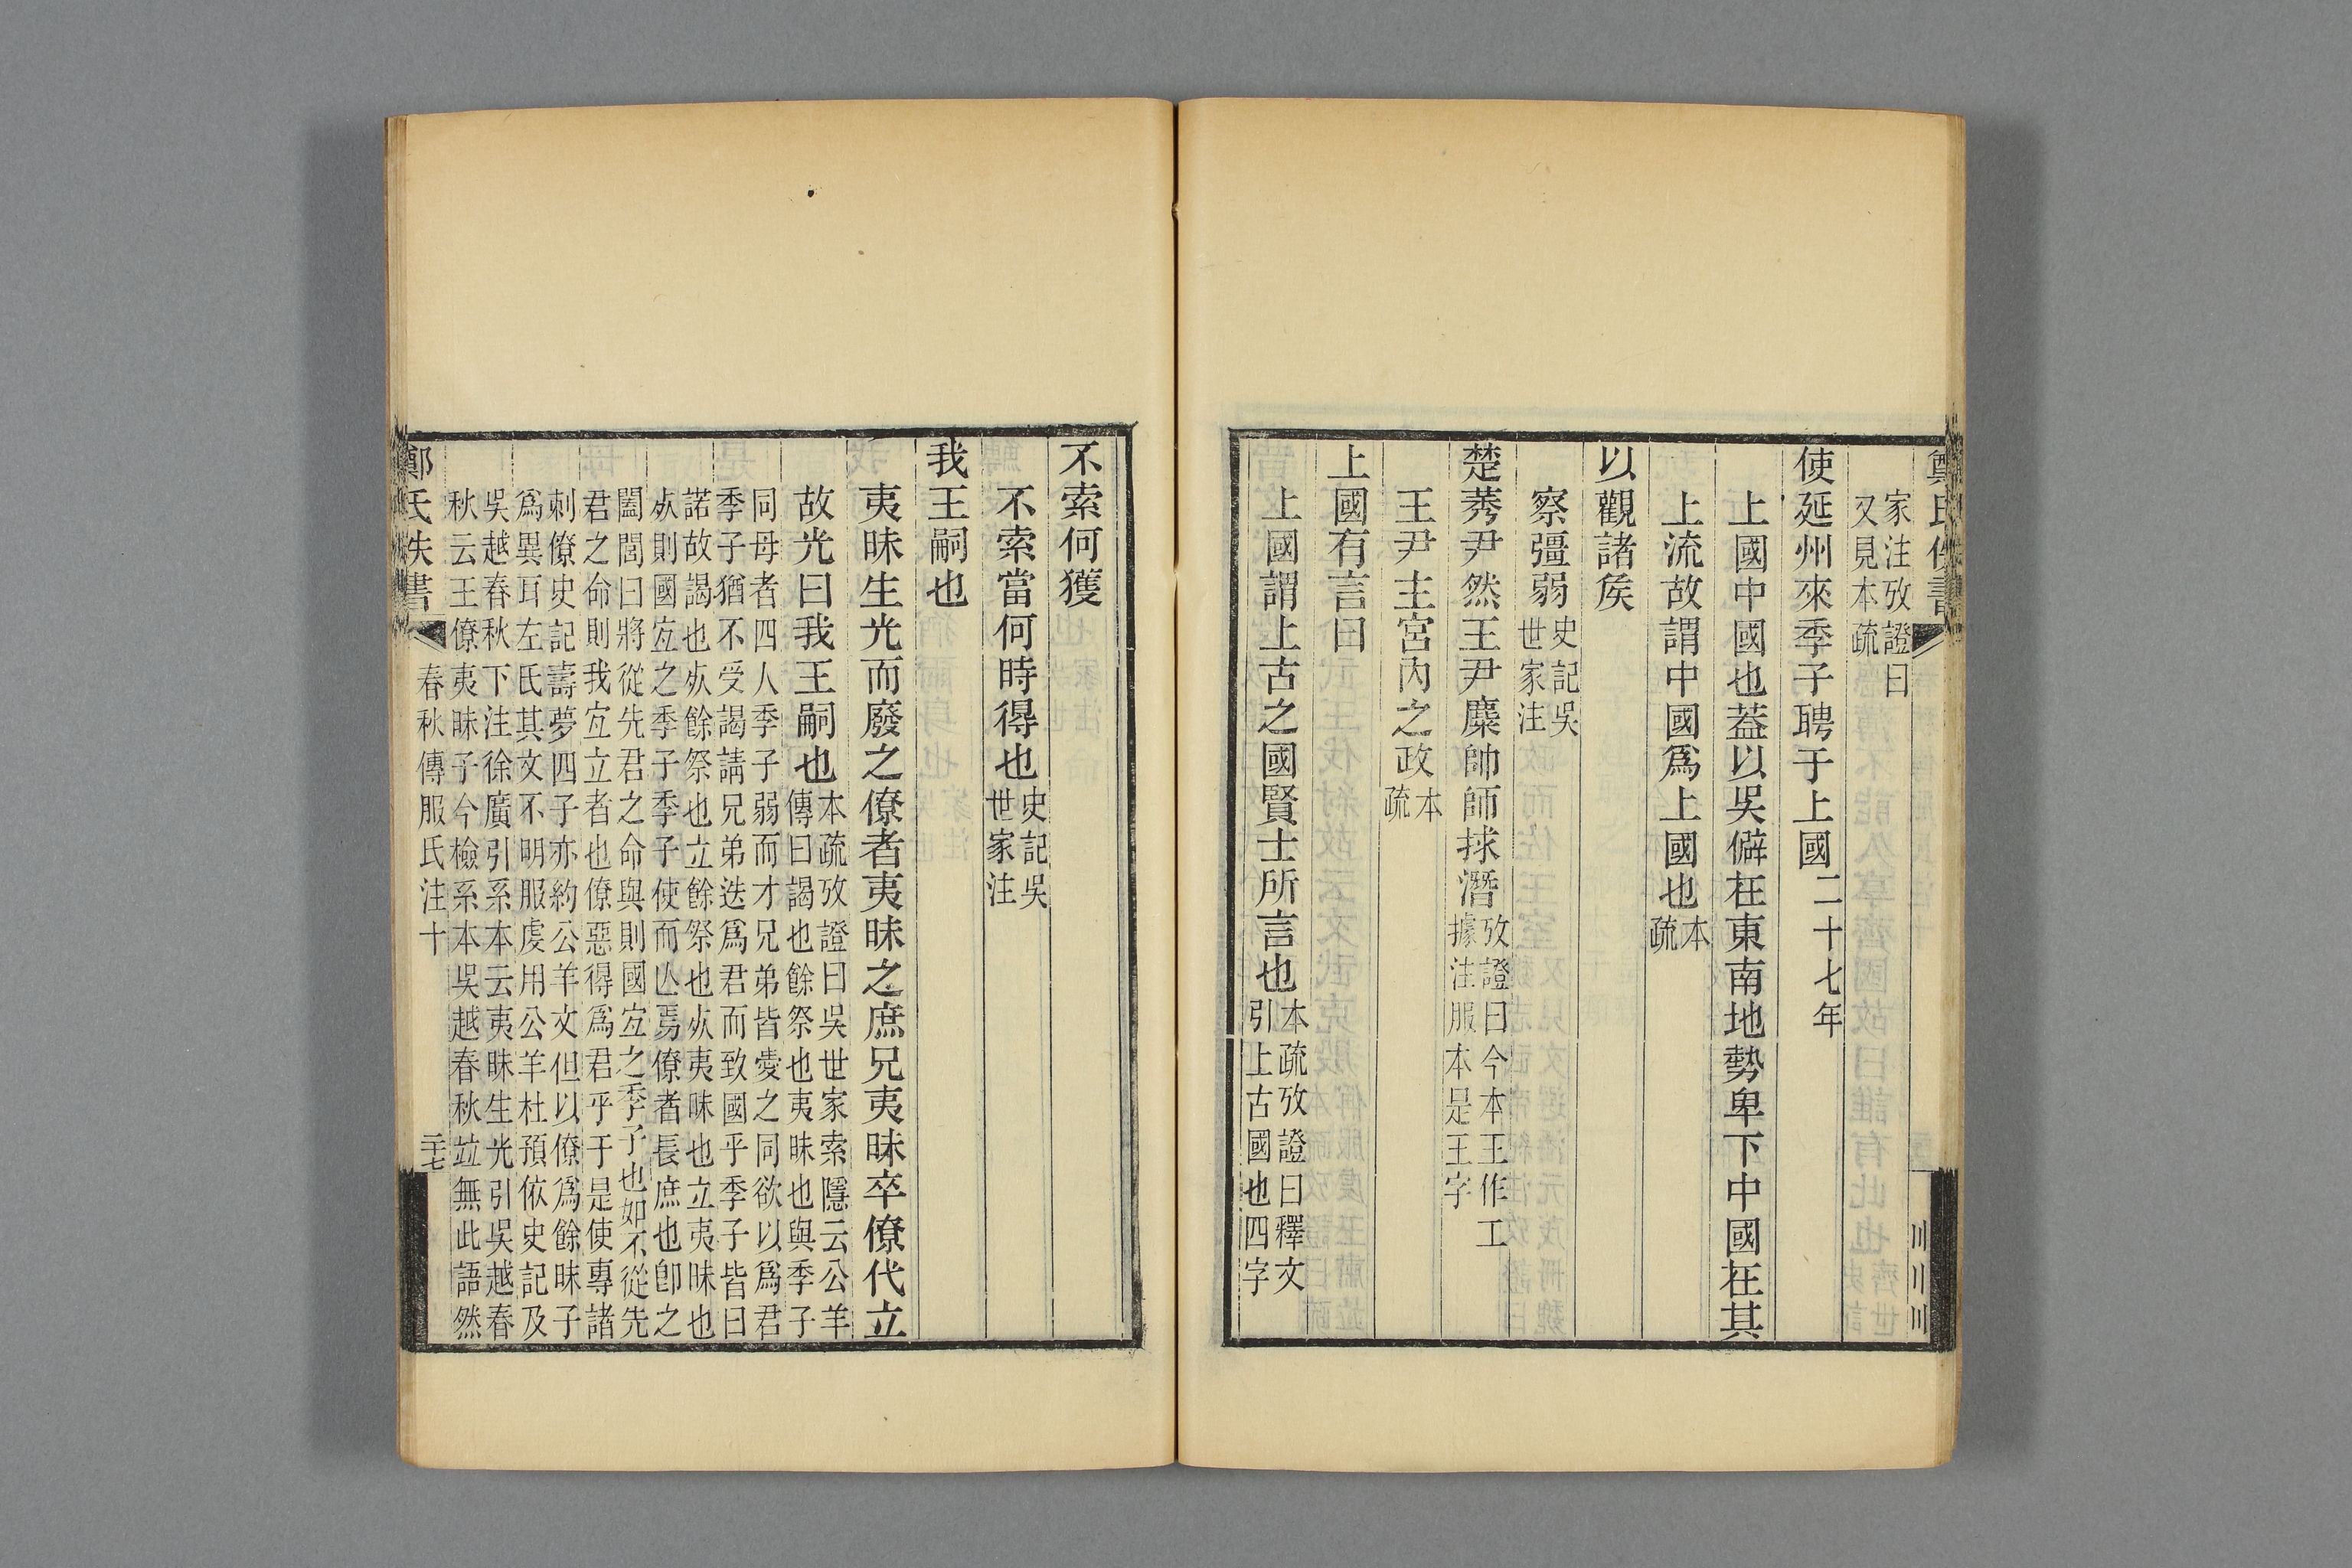 家注攷證曰
又見本疏
使延州來季子聘于上國二十七年
上國中國也葢以吳僻在東南地勢卑下中國在其
上流故謂中國爲上國也本
疏
以觀諸矦
察彊弱史記吳
世家注
楚莠尹然王尹麋帥師捄潛攷證曰今本王作工
據注服本是王字
王尹主宮內之政本
疏
上國有言曰
上國謂上古之國賢士所言也本疏攷證曰釋文
引上古國也四字
不索何獲
不索當何時得也史記吳
世家注
我王嗣也
夷昧生光而廢之僚者夷昧之庶兄夷昧卒僚代立
故光曰我王嗣也本疏攷證曰吳世家索隱云公羊
傳曰謁也餘祭也夷昧也與季子
同母者四人季子弱而才兄弟皆愛之同欲以爲君
季子猶不受謁請兄弟迭爲君而致國乎季子皆曰
諾故謁也㱙餘祭也立餘祭也㱙夷昧也立夷昧也
㱙則國宐之季子季子使而亾焉僚者長庶也卽之
闔閭曰將從先君之命與則國宐之季子也如不從先
君之命則我宐立者也僚惡得爲君乎于是使專諸
刺僚史記壽夢四子亦約公羊文但以僚爲餘昧子
爲異耳左氏其文不明服虔用公羊杜預依史記及
吳越春秋下注徐廣引系本云夷昧生光引吳越春
秋云王僚夷昧子今檢系本吳越春秋竝無此語然
鄭氏佚書
春秋傳服氏注十
二十七